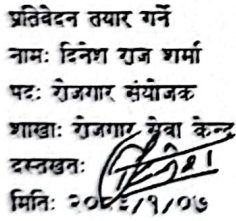 प्रतिवेदन तयार गर्ने
नामः दिनेश राज शर्मा
पदः रोजगार संयोजक
शाखाः रोजगार सेवा केन्द्र
दस्तखतः
मितिः /१/०७